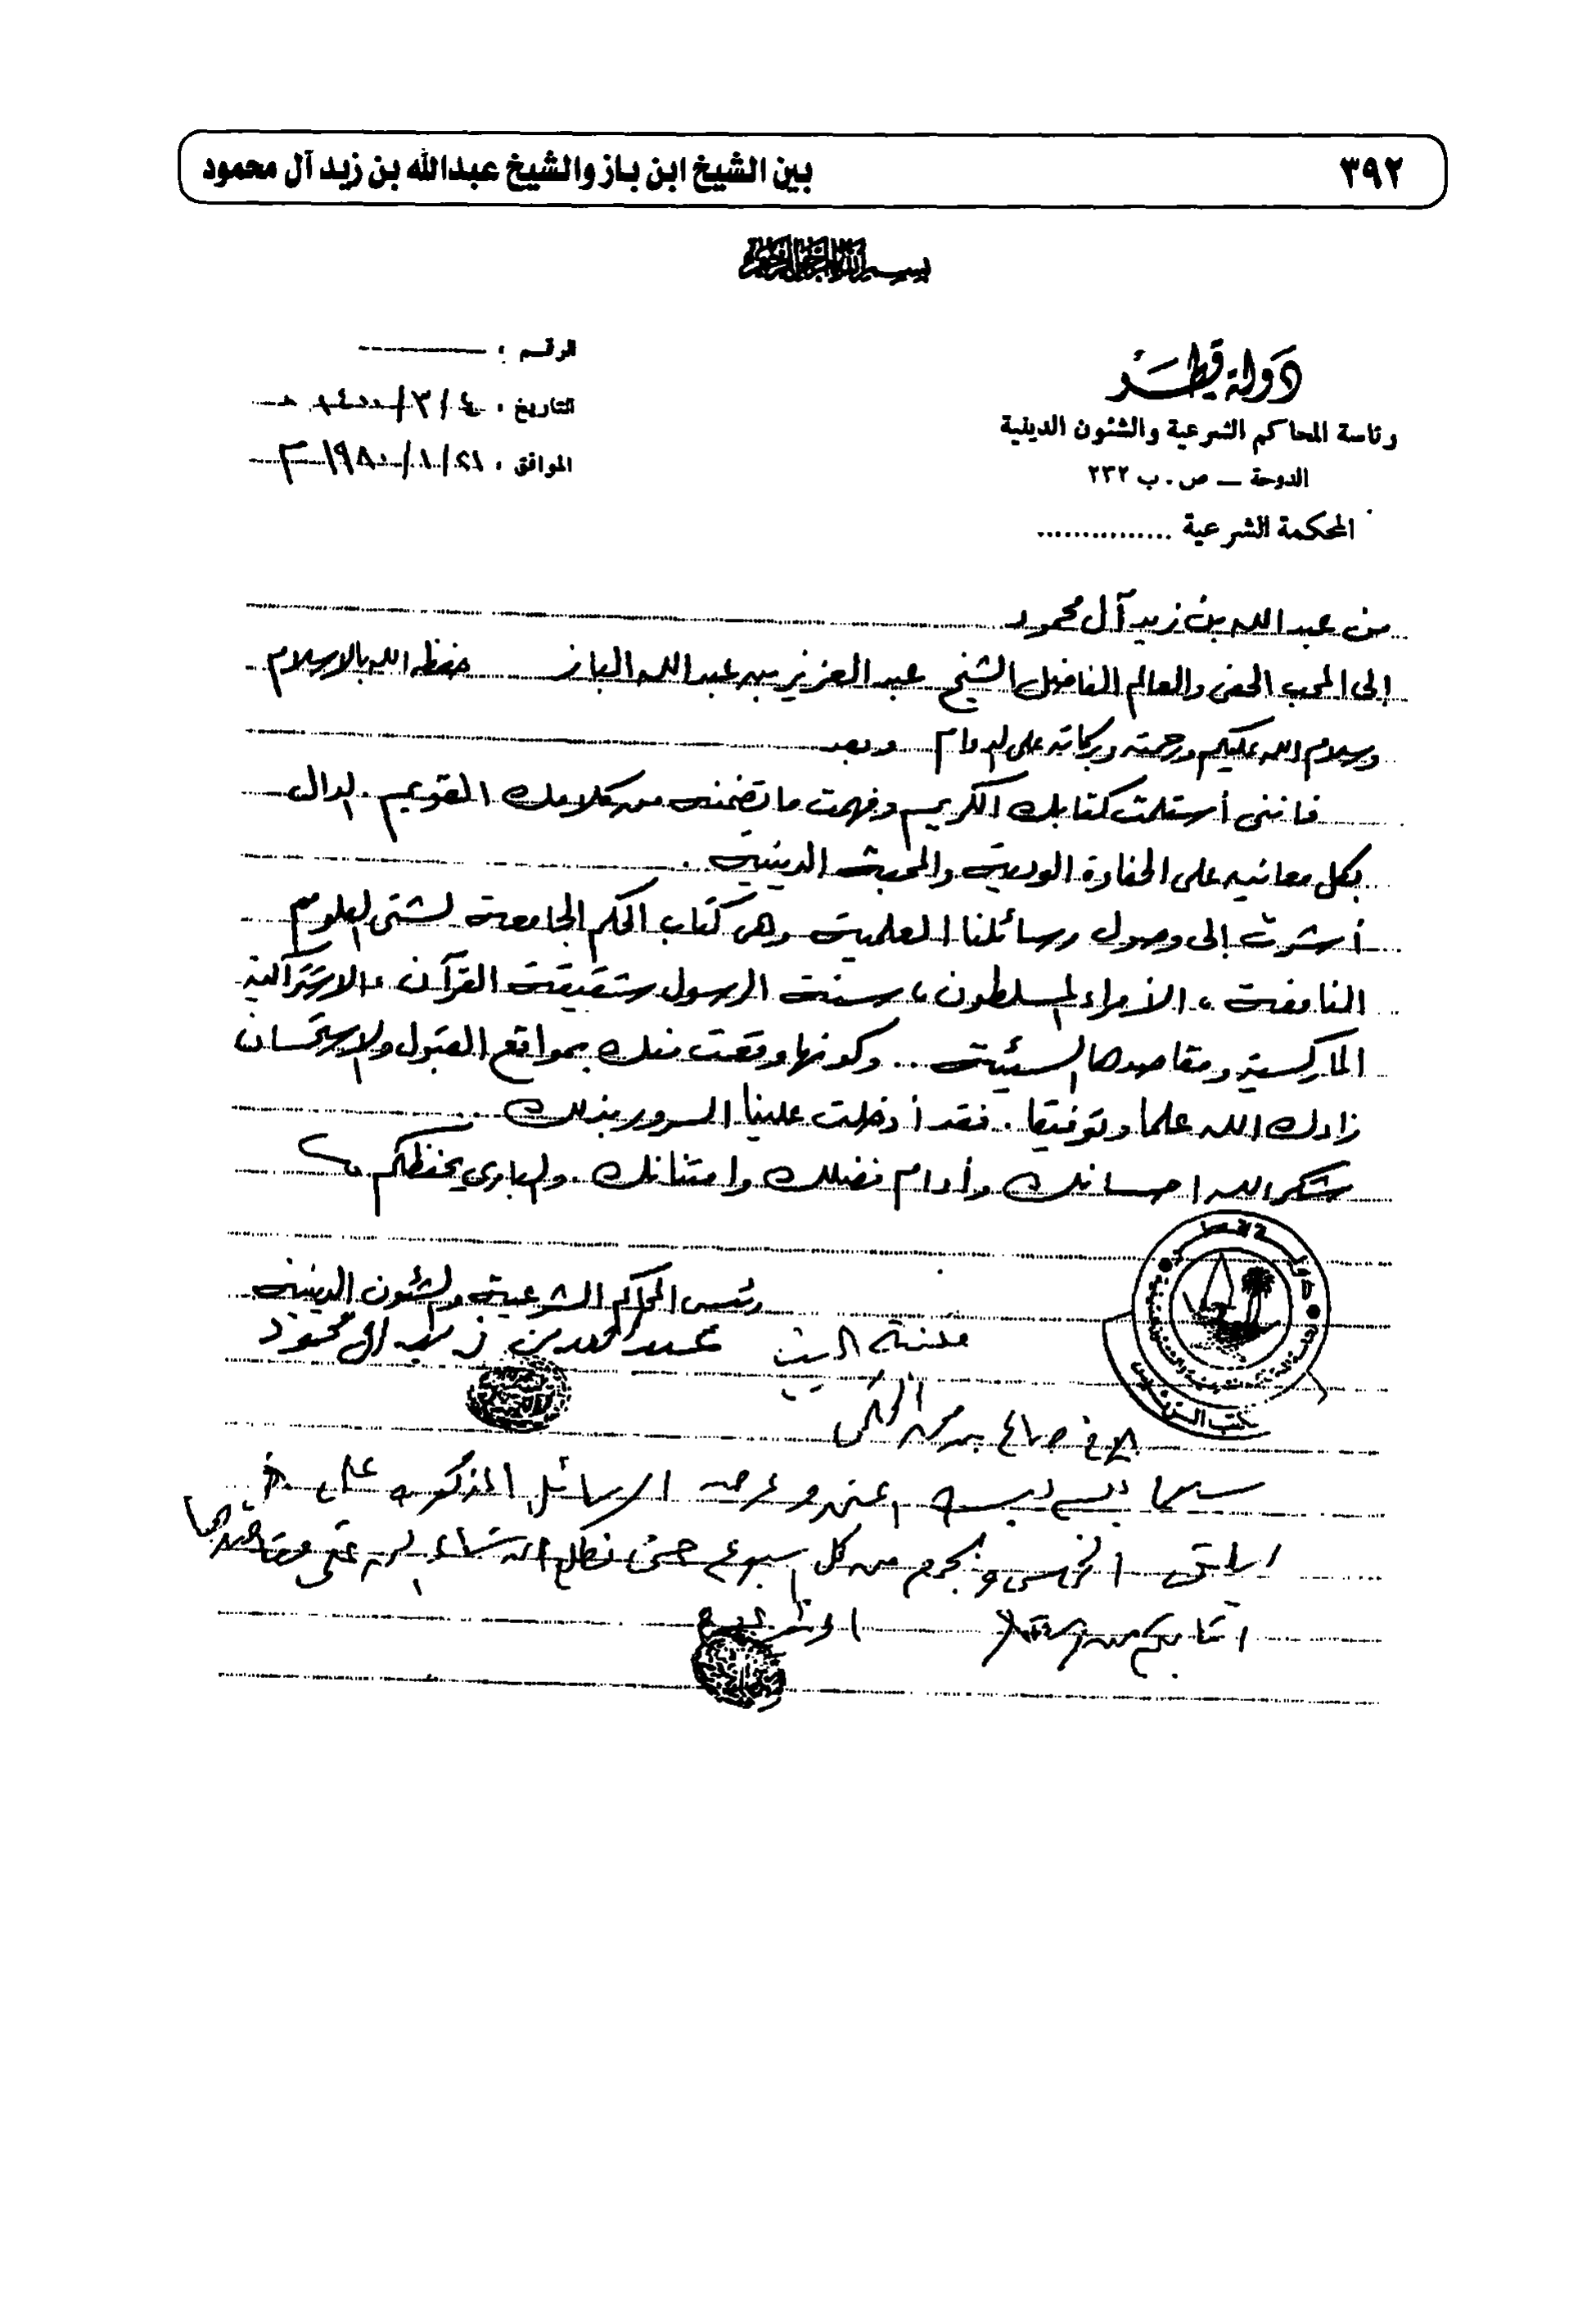 ٣٩٢
بين الشيخ ابن باز والشيخ عبدالله بن زيد آل محمود
بسم الله الرحمن الرحيم
دولة قطر
رئاسة المحاكم الشرعية والشئون الدينية
الدوحة — ص . ب ٢٣٢
المحكمة الشرعية ...............
الرقم :
التاريخ : ٤ / ٣ / ١٤٠٠ هـ
الموافق : ٢١ / ١ / ١٩٨٠ م
من عبد الله بن زيد آل محمود
إلى المحب الحفي والعالم الفاضل الشيخ عبد العزيز بن عبد الله الباز حفظه الله بالاسلام
وسلام الله عليكم ورحمته وبركاته على الدوام وبعد
فانني أستلمت كتابك الكريم وفهمت ما تضمنه من كلامك القويم . الدال
بكل معانيه على الحفاوة الودية والمحبة الدينية .
أشرت إلى وصول رسائلنا العلمية وهي كتاب الحكم الجامعة لشتى العلوم
النافعة ، الأمراء المسلطون ، سنة الرسول شقيقة القرآن ، الاشتراكية
الماركسية ومقاصدها السيئة .. وكونها وقعت منك بمواقع القبول والاستحسان
زادك الله علما وتوفيقا . فقد أدخلت علينا السرور بذلك .
شكر الله احسانك وأدام فضلك وامتنانك . والباري يحفظكم
رئيس المحاكم الشرعية والشئون الدينية
عبد الله بن زيد آل محمود
الرسائل المذكورة على
من كل اسبوع حتى نطلع ان شاء الله على مقاصدها
اثابكم